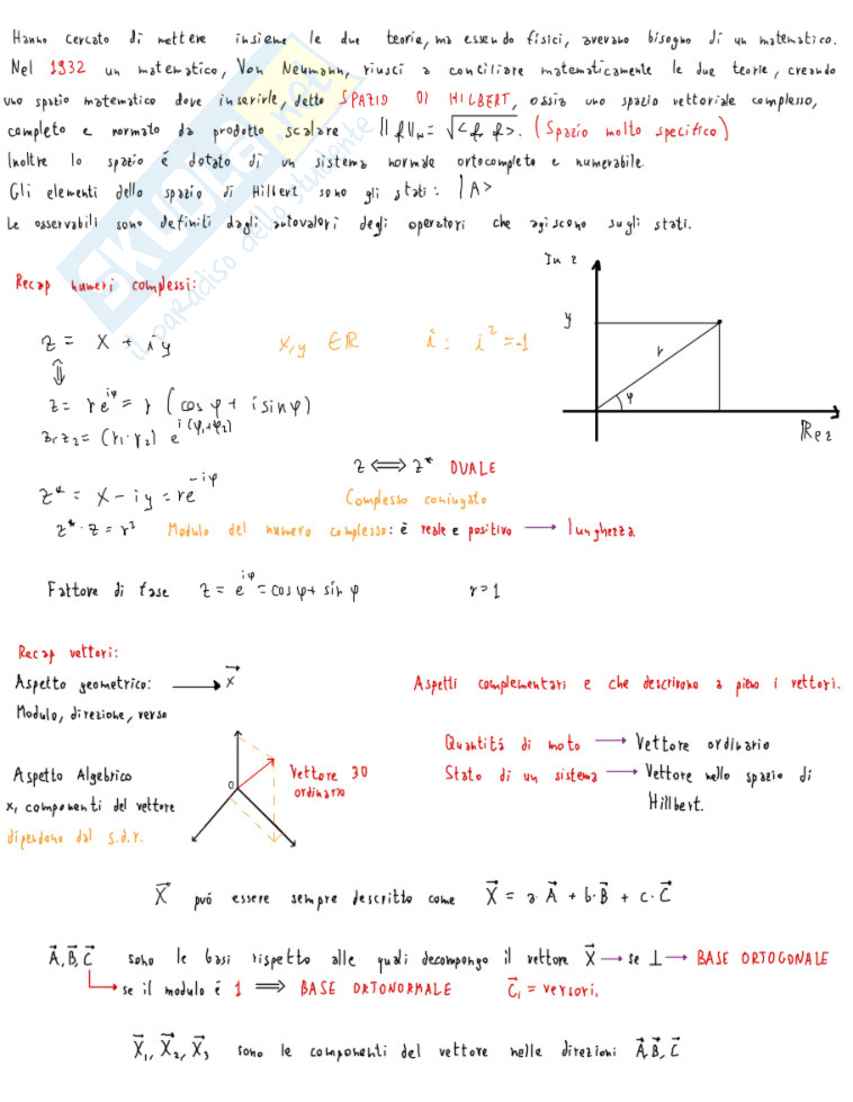 Hanno cercato di mettere insieme le due teorie, ma essendo fisici, avevano bisogno di un matematico.
Nel 1932 un matematico, Von Neumann, riuscí a conciliare matematicamente le due teorie, creando
uno spazio matematico dove inserirle, detto SPAZIO DI HILBERT, ossia uno spazio vettoriale complesso,
completo e normato da prodotto scalare ||f||_H = √<f, f>. (Spazio molto specifico)
Inoltre lo spazio é dotato di un sistema normale ortocompleto e numerabile
Gli elementi dello spazio di Hilbert sono gli stati: |A>
Le osservabili sono definiti dagli autovalori degli operatori che agiscono sugli stati.
SKUOLA.net
il paradiso dello studente
Recap numeri complessi:
Im z
y
r
φ
Re z
z = x + iy x,y ∈ ℝ i: i² = -1
⇕
z = re^{iφ} = r (cos φ + i sin φ)
z₁·z₂ = (r₁·r₂) e^{i(φ₁+φ₂)}
z ⟺ z* DUALE
z* = x - iy = re^{-iφ} Complesso coniugato
z*·z = r² Modulo del numero complesso: è reale e positivo → lunghezza
Fattore di fase z = e^{iφ} = cos φ + sin φ r=1
Recap vettori:
Aspetto geometrico: → x⃗ Aspetti complementari e che descrivono a pieno i vettori.
Modulo, direzione, verso
Quantitá di moto → Vettore ordinario
Aspetto Algebrico O Vettore 3D Stato di un sistema → Vettore nello spazio di
ordinario
x, componenti del vettore Hillbert.
dipendono dal s.d.r.
X⃗ puó essere sempre descritto come X⃗ = a·A⃗ + b·B⃗ + c·C⃗
A⃗, B⃗, C⃗ sono le basi rispetto alle quali decompongo il vettore X⃗ → se ⊥ → BASE ORTOGONALE
↳ se il modulo é 1 ⟹ BASE ORTONORMALE C⃗ᵢ = versori.
X⃗₁, X⃗₂, X⃗₃ sono le componenti del vettore nelle direzioni A⃗, B⃗, C⃗